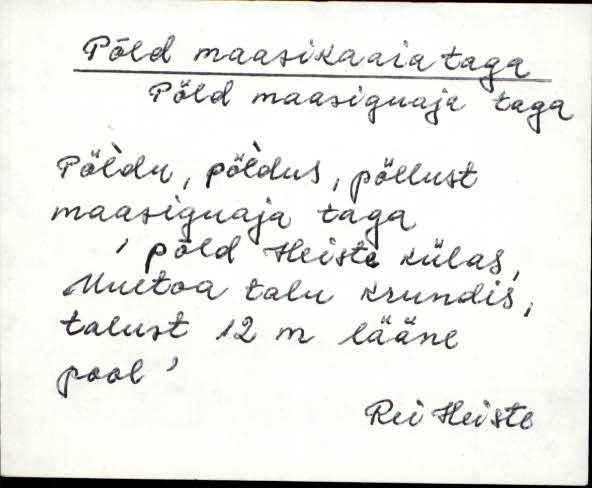 Põld maasikaaia taga
Põld maasiguaja taga
Põl̀du, põl̀dus, põllust
maasiguaja taga
' põld Heiste külas,
talu krundis,
talust 12 m lääne
pool '
Rei Heiste